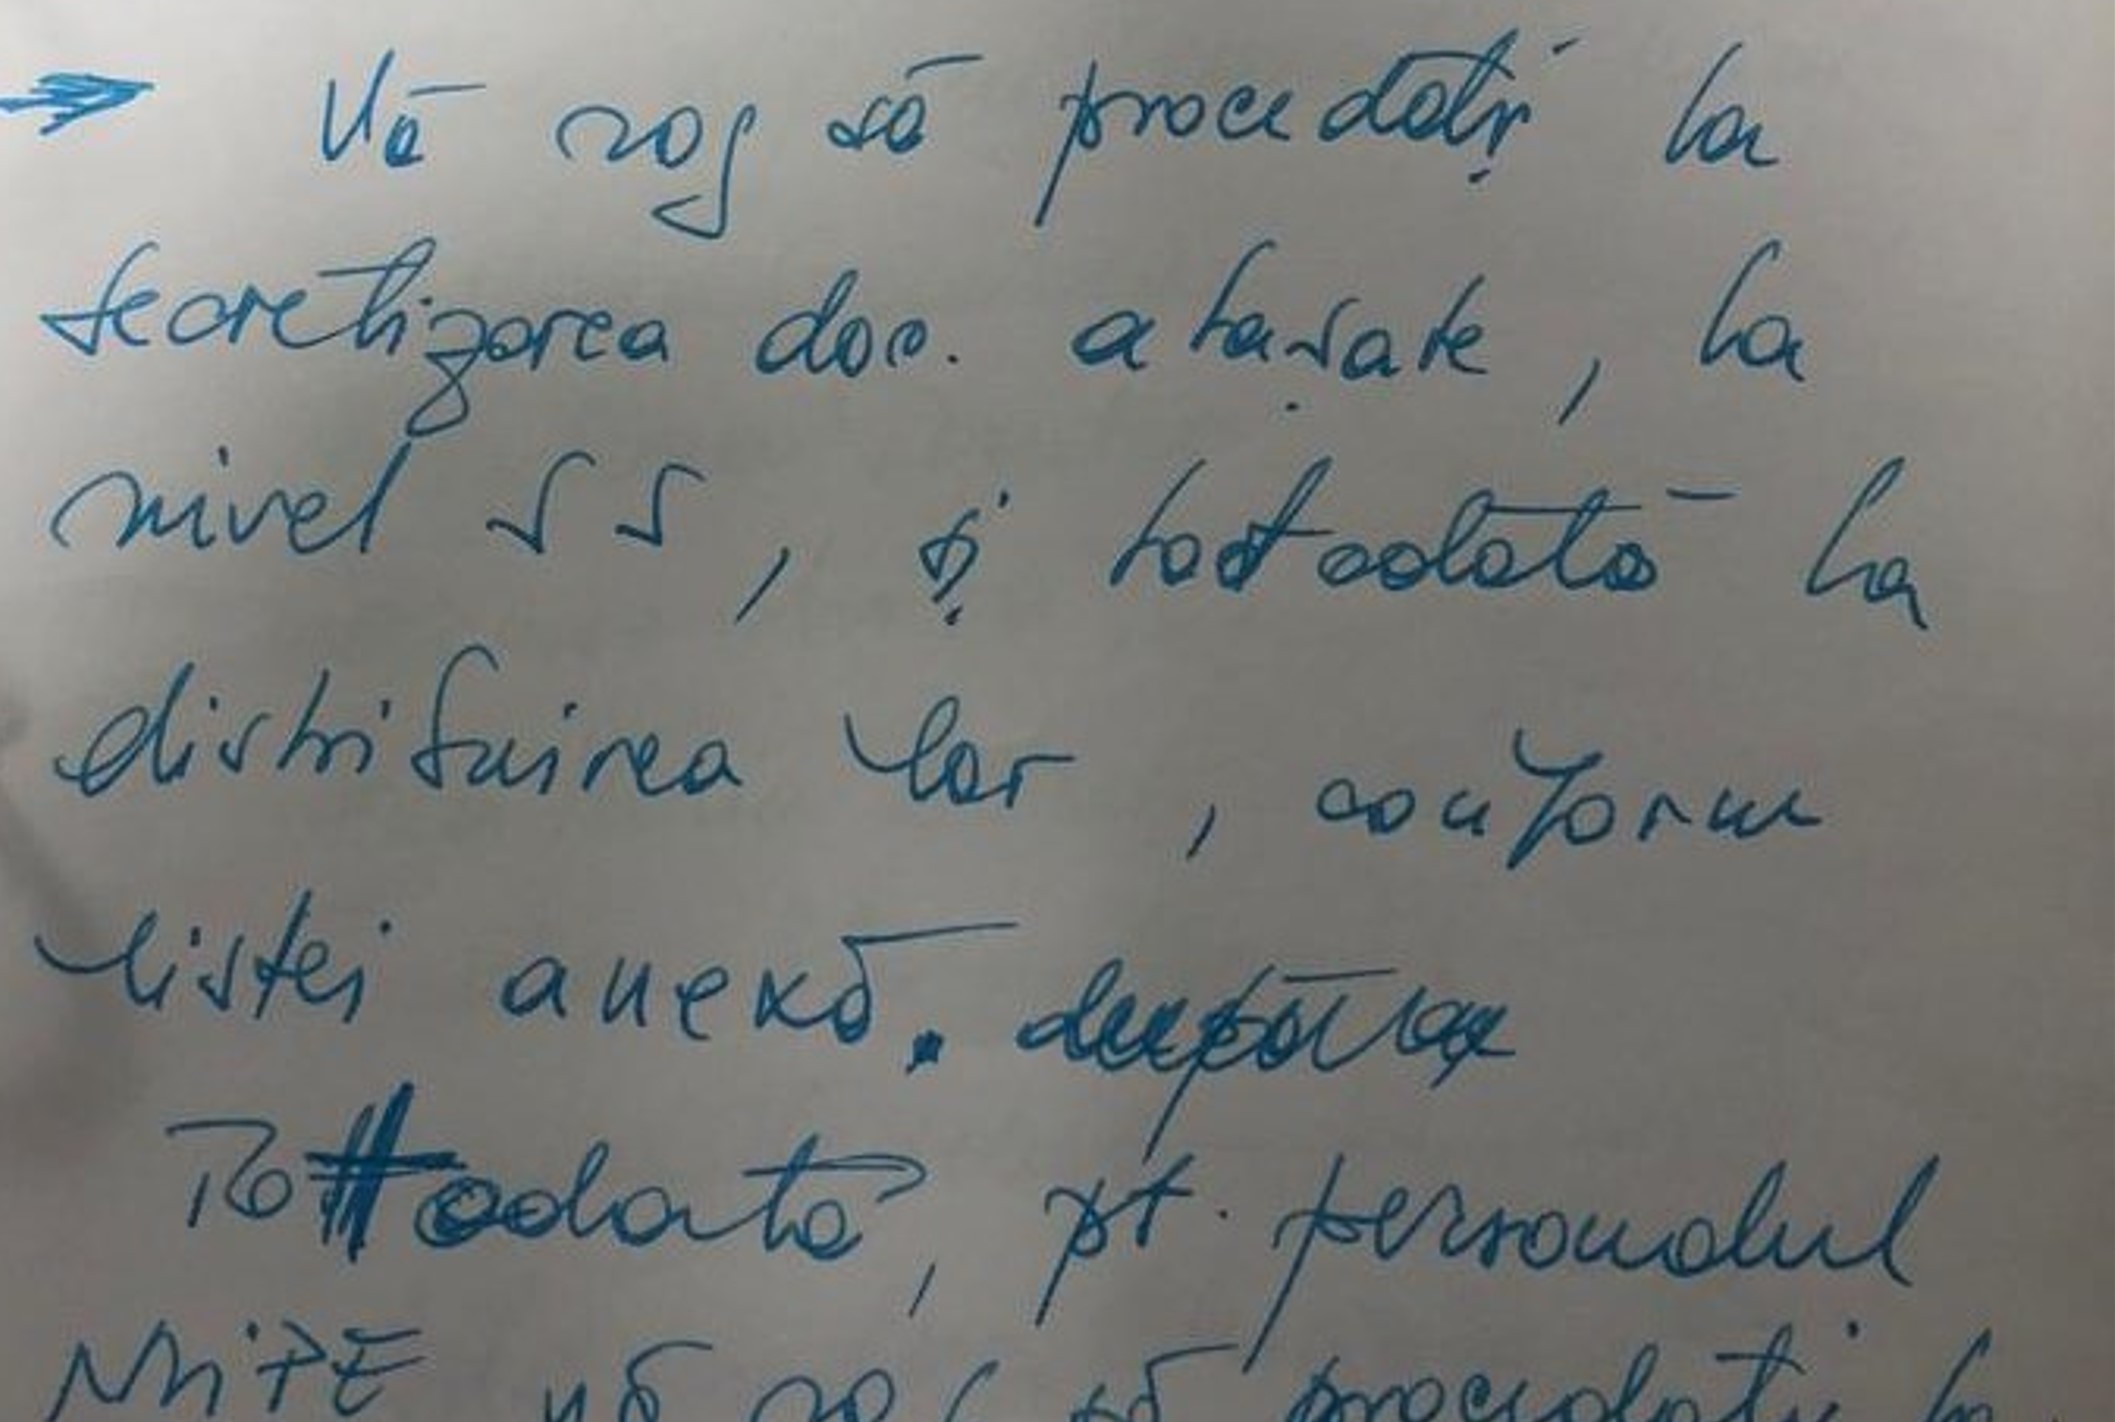 → Vă rog să procedați la
secretizarea doc. atașate, la
nivel SS, și totodată la
distribuirea lor, conform
listei anexă.
Totodată, pt. personalul
MIPE vă rog să procedați la